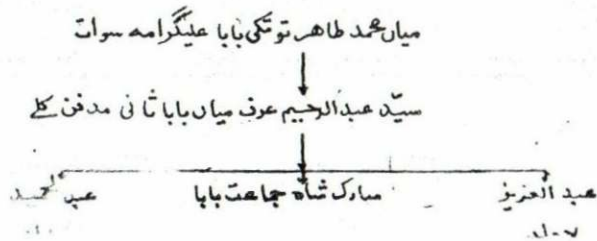 میاں محمد طاهر توتکی بابا علیگرامه سوات
سیّد عبدالرحیم عرف میاں بابا ثانی مدفن کلے
عبدالعزیز مبارک شاه جماعت بابا عبدالحمید